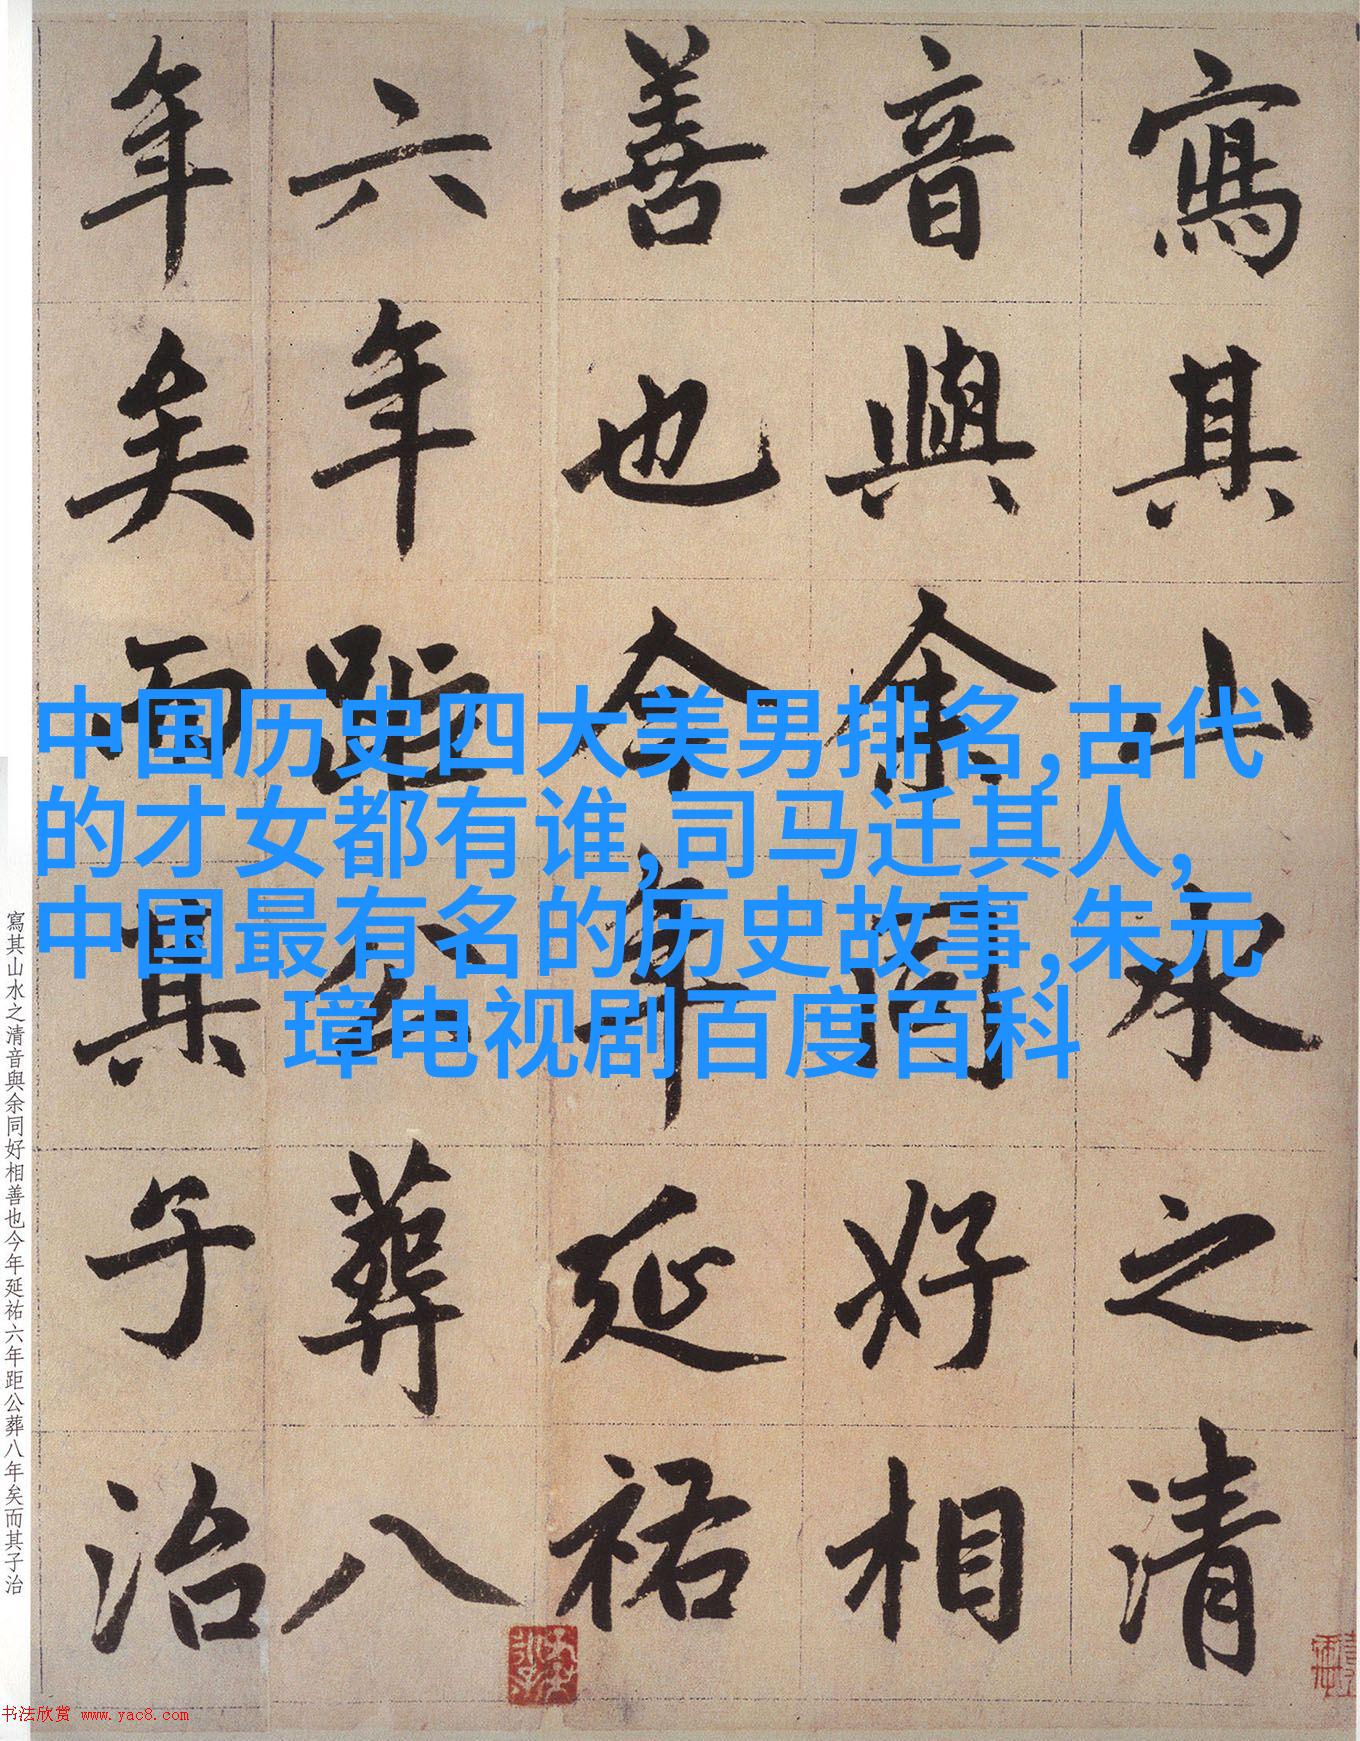 寫其山水之清
音與余同好相
善也今年延祐
六年距公葬八
年矣而其子治
中国历史四大美男排名,古代
的才女都有谁,司马迁其人,
中国最有名的历史故事,朱元
璋电视剧百度百科
寫其山水之清音與余同好相善也今年延祐六年距公葬八年矣而其子治
书法欣赏 www.yac8.com